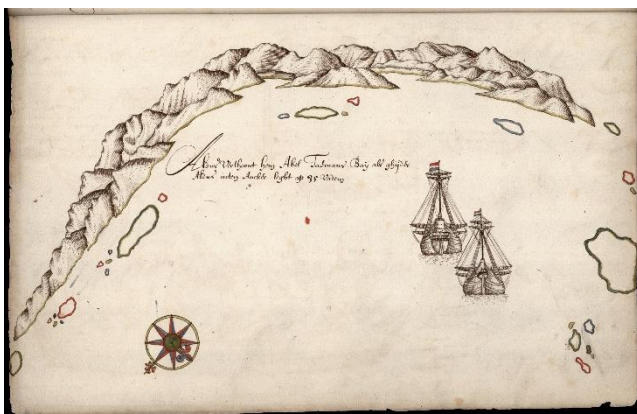 Aldus Verthoont hem Abel Tasmans Baij als ghij
Ancker light op 35 Vadem